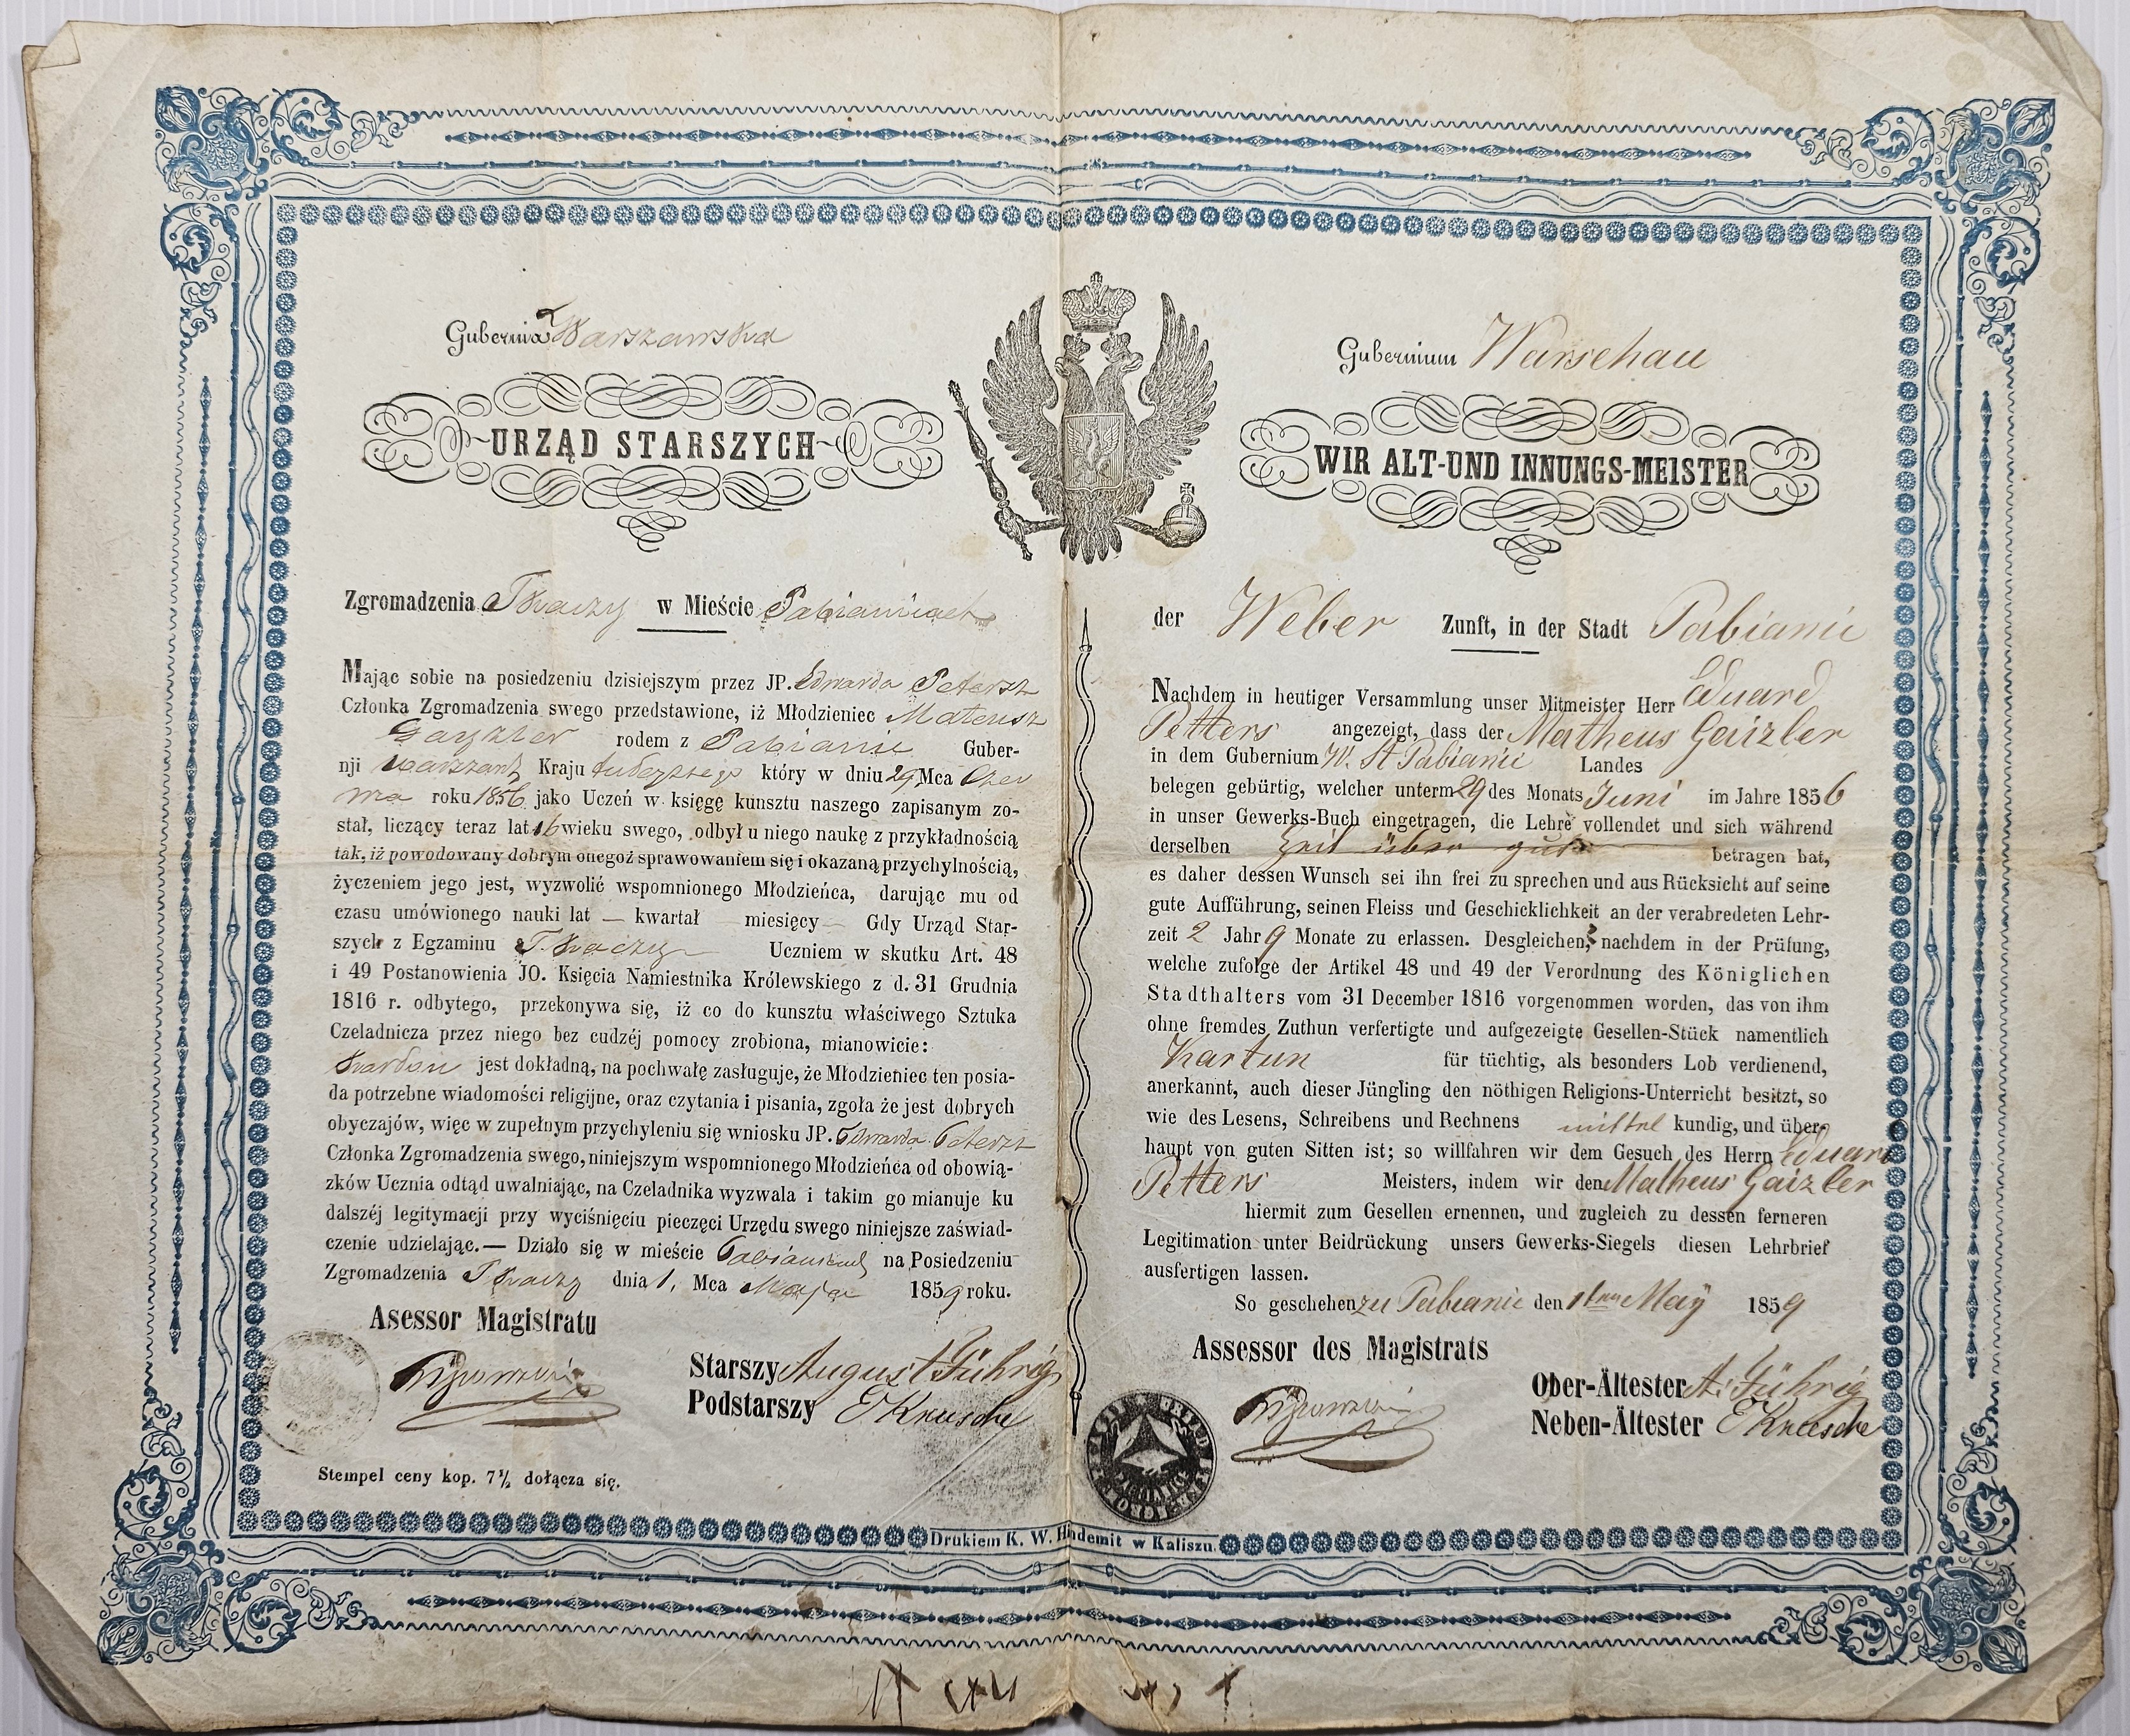 Gubernia Warszawska
URZĄD STARSZYCH
Zgromadzenia Tkaczy w Mieście Pabianicach
Mając sobie na posiedzeniu dzisiejszym przez JP. Edwarda Petersz
Członka Zgromadzenia swego przedstawione, iż Młodzieniec Mateusz
Gayzler rodem z Pabianic Guber-
nji Warszaws Kraju tutejszego który w dniu 29 Mca Czer
wca roku 1856 jako Uczeń w księgę kunsztu naszego zapisanym zo-
stał, liczący teraz lat 16 wieku swego, odbył u niego naukę z przykładnością
tak, iż powodowany dobrym onegoż sprawowaniem się i okazaną przychylnością,
życzeniem jego jest, wyzwolić wspomnionego Młodzieńca, darując mu od
czasu umówionego nauki lat — kwartał — miesięcy — Gdy Urząd Star-
szych z Egzaminu z Tkaczy Uczniem w skutku Art. 48
i 49 Postanowienia JO. Księcia Namiestnika Królewskiego z d. 31 Grudnia
1816 r. odbytego, przekonywa się, iż co do kunsztu właściwego Sztuka
Czeladnicza przez niego bez cudzéj pomocy zrobiona, mianowicie:
jest dokładną, na pochwałę zasługuje, że Młodzieniec ten posia-
da potrzebne wiadomości religijne, oraz czytania i pisania, zgoła że jest dobrych
obyczajów, więc w zupełnym przychyleniu się wniosku JP. Edwarda Petersz
Członka Zgromadzenia swego, niniejszym wspomnionego Młodzieńca od obowią-
zków Ucznia odtąd uwalniając, na Czeladnika wyzwala i takim go mianuje ku
dalszéj legitymacji przy wyciśnięciu pieczęci Urzędu swego niniejsze zaświad-
czenie udzielając.— Działo się w mieście Pabianicach na Posiedzeniu
Zgromadzenia Tkaczy dnia 1. Mca Maja 1859 roku.
Asessor Magistratu
Starszy August Führig
Podstarszy E Krusche
Stempel ceny kop. 7½ dołącza się.
Gubernium Warschau
WIR ALT-UND INNUNGS-MEISTER
der Weber Zunft, in der Stadt Pabianic
Nachdem in heutiger Versammlung unser Mitmeister Herr Eduard
Petters angezeigt, dass der Matheus Gaizler
in dem Gubernium W. St Pabianic Landes
belegen gebürtig, welcher unterm 29 des Monats Juni im Jahre 1856
in unser Gewerks-Buch eingetragen, die Lehre vollendet und sich während
derselben Zeit über gut betragen hat,
es daher dessen Wunsch sei ihn frei zu sprechen und aus Rücksicht auf seine
gute Aufführung, seinen Fleiss und Geschicklichkeit an der verabredeten Lehr-
zeit 2 Jahr 9 Monate zu erlassen. Desgleichen, nachdem in der Prüfung,
welche zufolge der Artikel 48 und 49 der Verordnung des Königlichen
Stadthalters vom 31 December 1816 vorgenommen worden, das von ihm
ohne fremdes Zuthun verfertigte und aufgezeigte Gesellen-Stück namentlich
Kartun für tüchtig, als besonders Lob verdienend,
anerkannt, auch dieser Jüngling den nöthigen Religions-Unterricht besitzt, so
wie des Lesens, Schreibens und Rechnens mittel kundig, und über-
haupt von guten Sitten ist; so willfahren wir dem Gesuch des Herrn Eduard
Petters Meisters, indem wir den Matheus Gaizler
hiermit zum Gesellen ernennen, und zugleich zu dessen ferneren
Legitimation unter Beidrückung unsers Gewerks-Siegels diesen Lehrbrief
ausfertigen lassen.
So geschehen zu Pabianic den 1ten May 1859
Assessor des Magistrats
Ober-Ältester A. Führig
Neben-Ältester E Krusche
Drukiem K. W. Hindemit w Kaliszu.